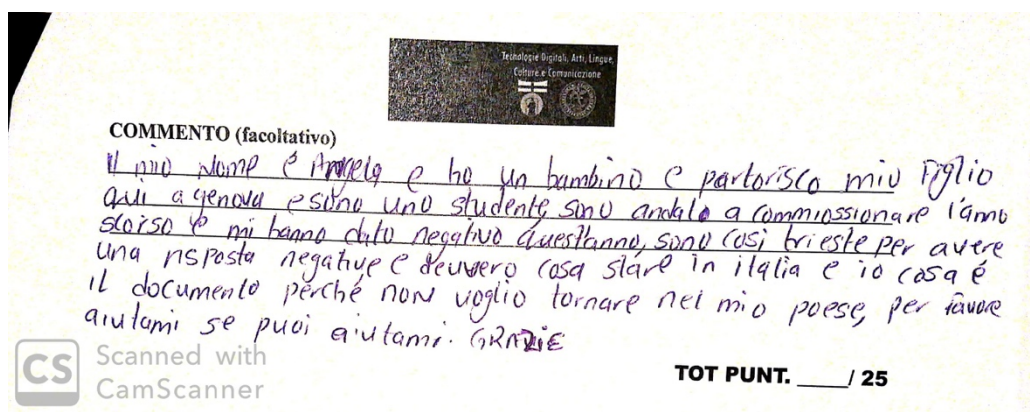 Tecnologie Digitali, Arti, Lingue,
Culture e Comunicazione
COMMENTO (facoltativo)
Il mio Nome é Angela e ho un bambino e partorisco mio Figlio
qui a genova e sono uno studente, sono andato a commiossionare l'anno
scorso e mi hanno dato negativo questanno, sono cosi trieste per avere
una risposta negative e deuvero cosa stare in italia e io cosa é
il documento perché non voglio tornare nel mio poese, per favore
aiutami se puoi aiutami. GRAZIE
CS Scanned with
CamScanner
TOT PUNT. ____/ 25